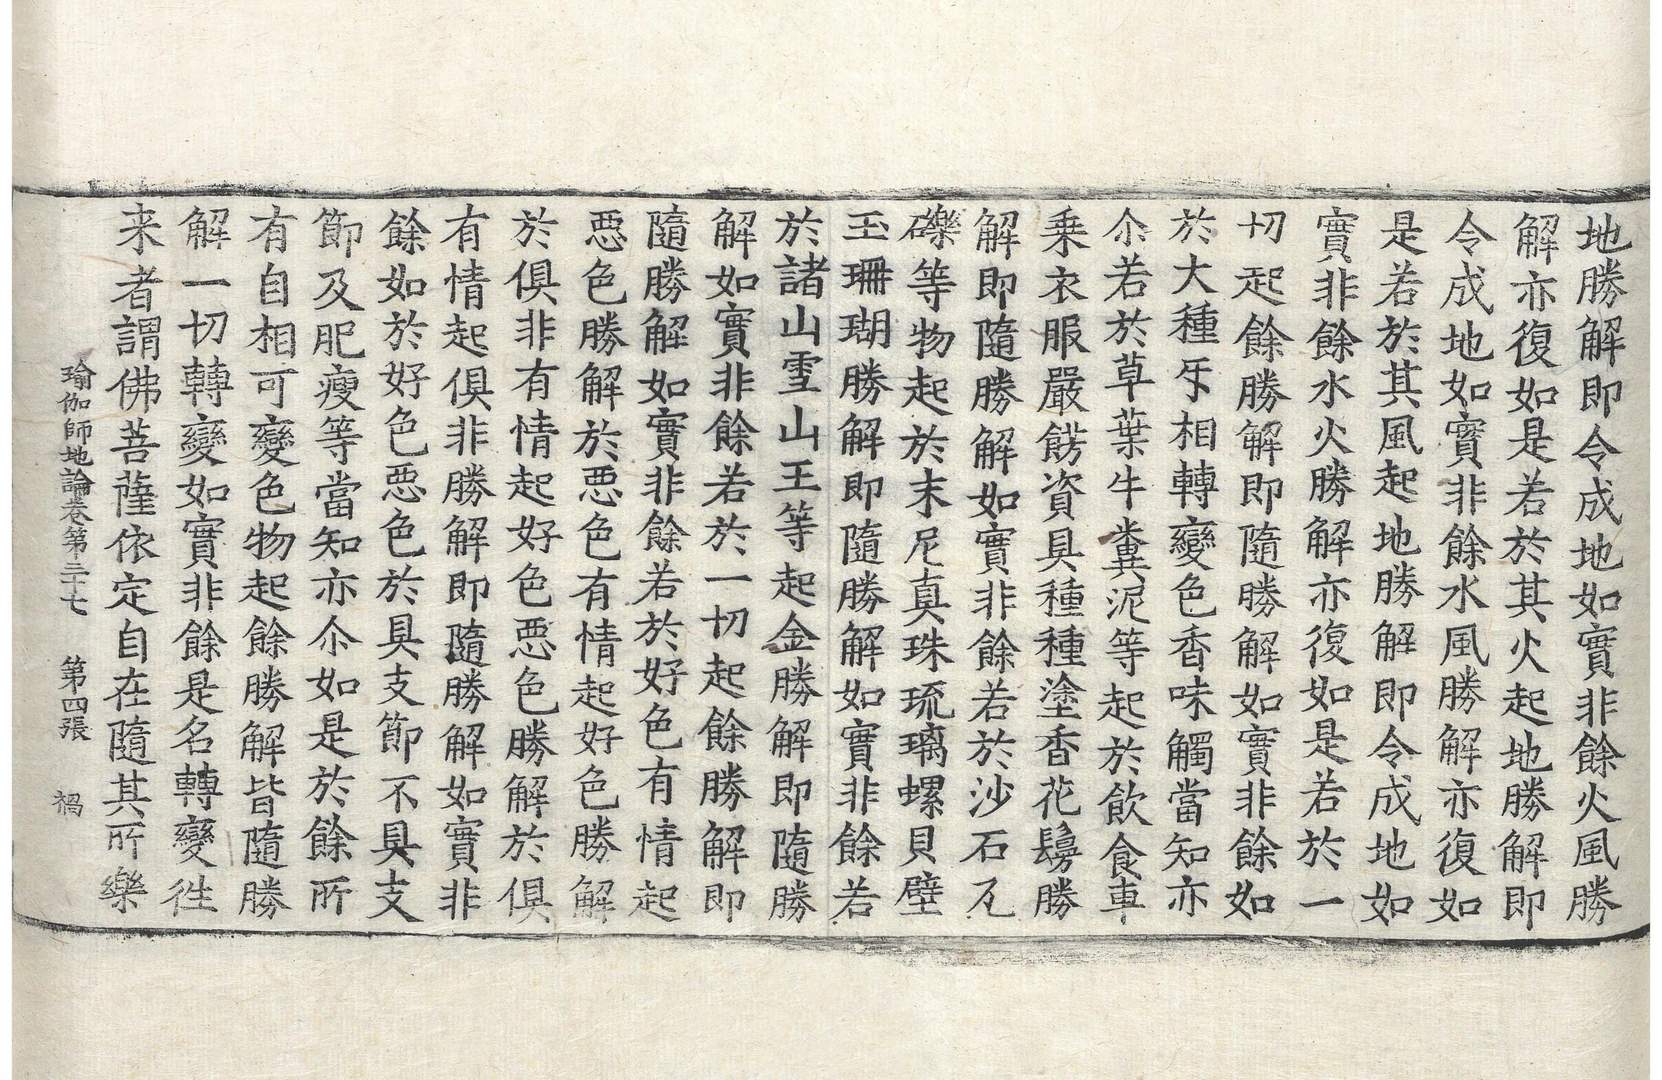 地勝解即令成地如實非餘火風勝
解亦復如是若於其火起地勝解即
令成地如實非餘水風勝解亦復如
是若於其風起地勝解即令成地如
實非餘水火勝解亦復如是若於一
切起餘勝解即隨勝解如實非餘如
於大種㸦相轉變色香味觸當知亦
尒若於草葉牛糞泥等起於飲食車
乗衣服嚴餝資具種種塗香花鬘勝
解即隨勝解如實非餘若於沙石瓦
礫等物起於末尼真珠琉璃螺貝璧
玉珊瑚勝解即隨勝解如實非餘若
於諸山雪山王等起金勝解即隨勝
解如實非餘若於一切起餘勝解即
隨勝解如實非餘若於好色有情起
惡色勝解於惡色有情起好色勝解
於俱非有情起好色惡色勝解於俱
有情起俱非勝解即隨勝解如實非
餘如於好色惡色於具支節不具支
節及肥瘦等當知亦尒如是於餘所
有自相可變色物起餘勝解皆隨勝
解一切轉變如實非餘是名轉變徃
来者謂佛菩薩依定自在隨其所樂
瑜伽師地論卷第三十七　第四張　禍